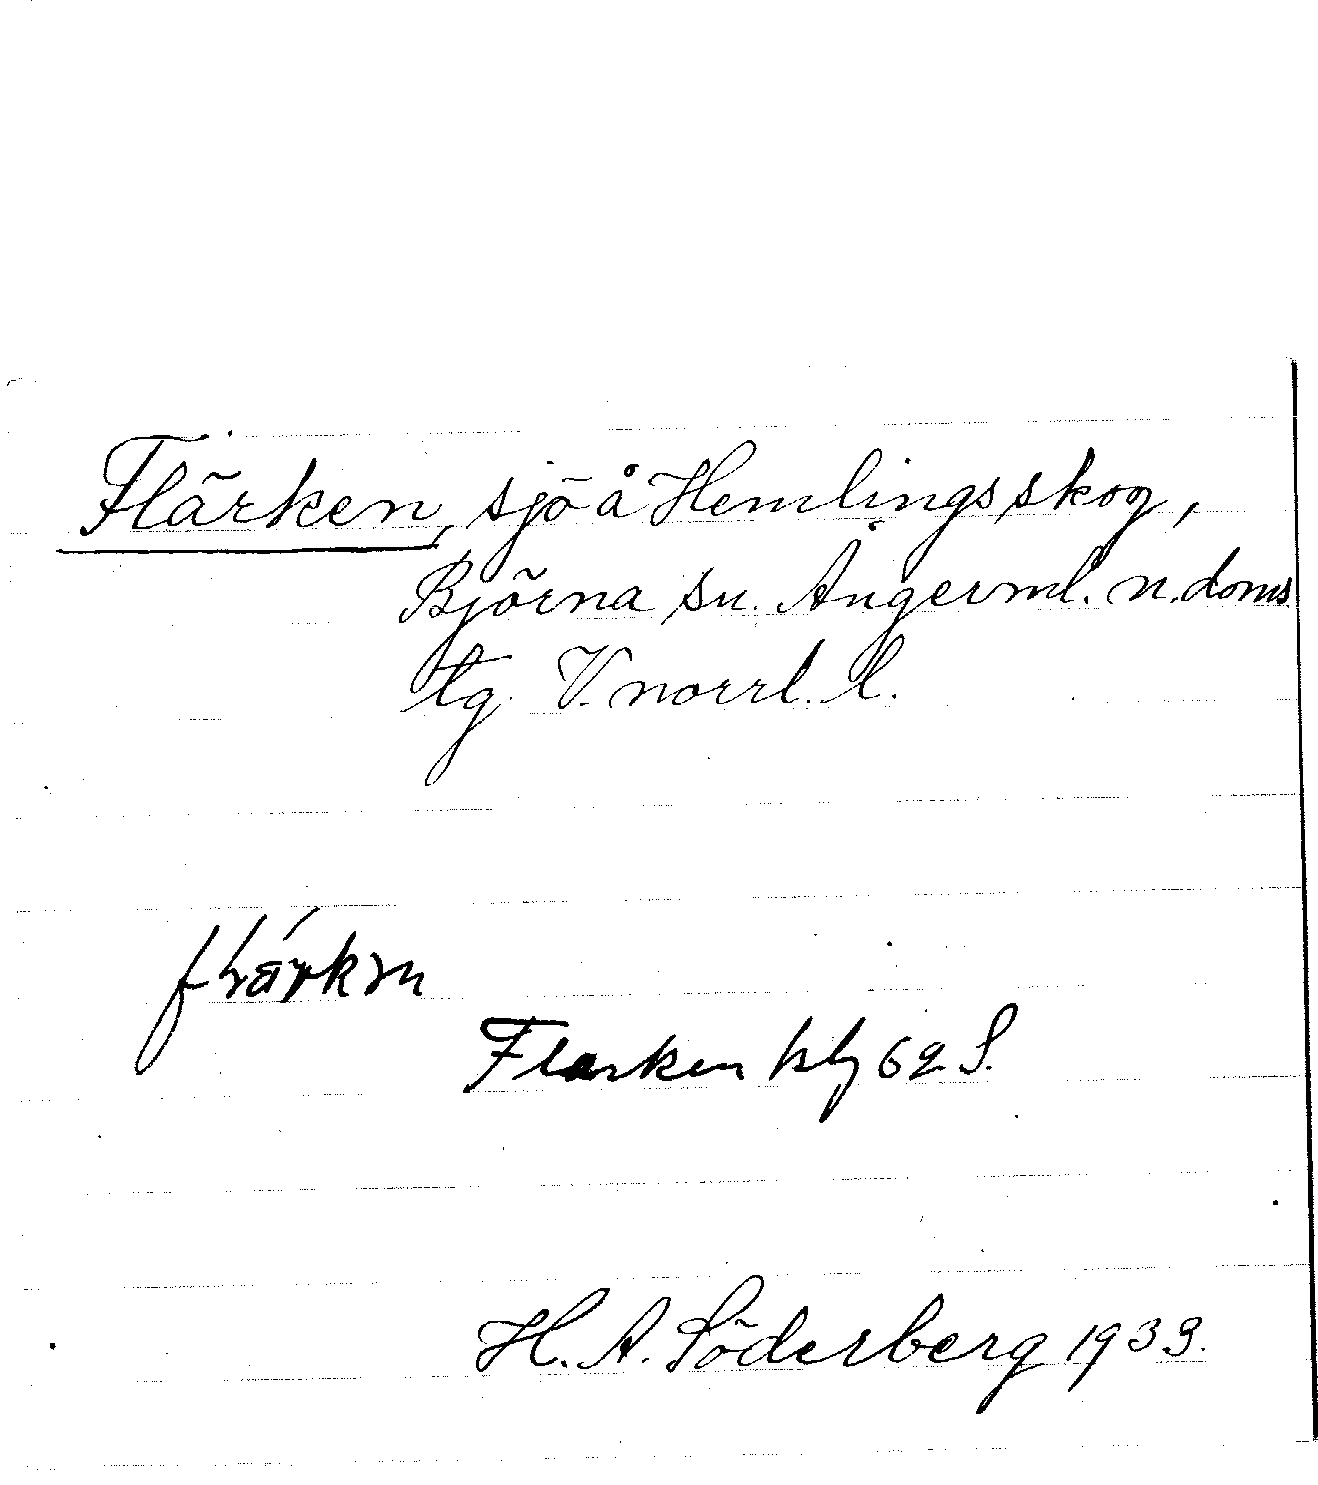 Flärken, sjö å Hemlingsskog,
Björna sn. Ångerml. n. doms
tg. V. norrl. l.
Flarken 62 S.
H. A. Söderberg 1933.